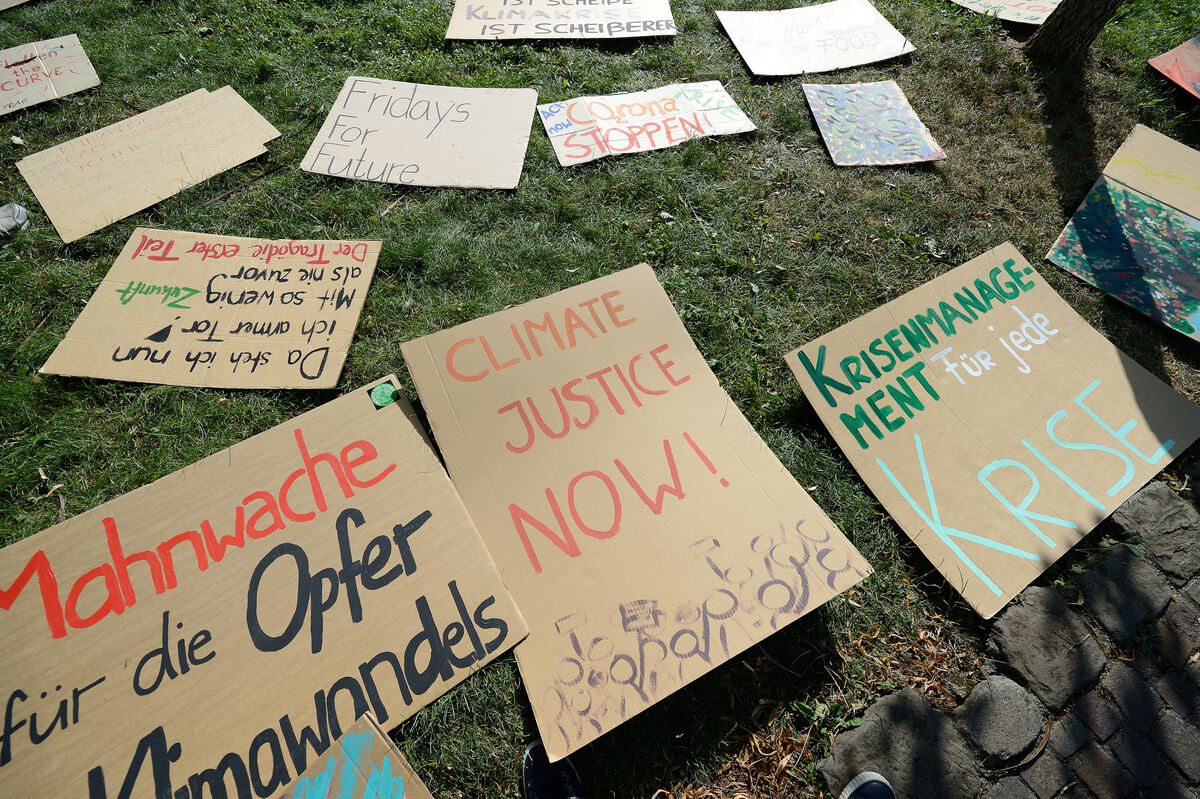 IST SCHEIßE
KLIMAKRISE
IST SCHEIßERER
NOT
FOOD
the
CURVE
YEAR
Fridays
For
Future
ACT
NOW
CORONA
STOPPEN!
Da steh ich nun
ich armer Tor!
Mit so wenig Zukunft
als nie zuvor
Der Tragödie erster Teil
CLIMATE
JUSTICE
NOW!
KRISENMANAGE
MENT FÜR jede
KRISE
Mahnwache
für die Opfer
für Klimawandels